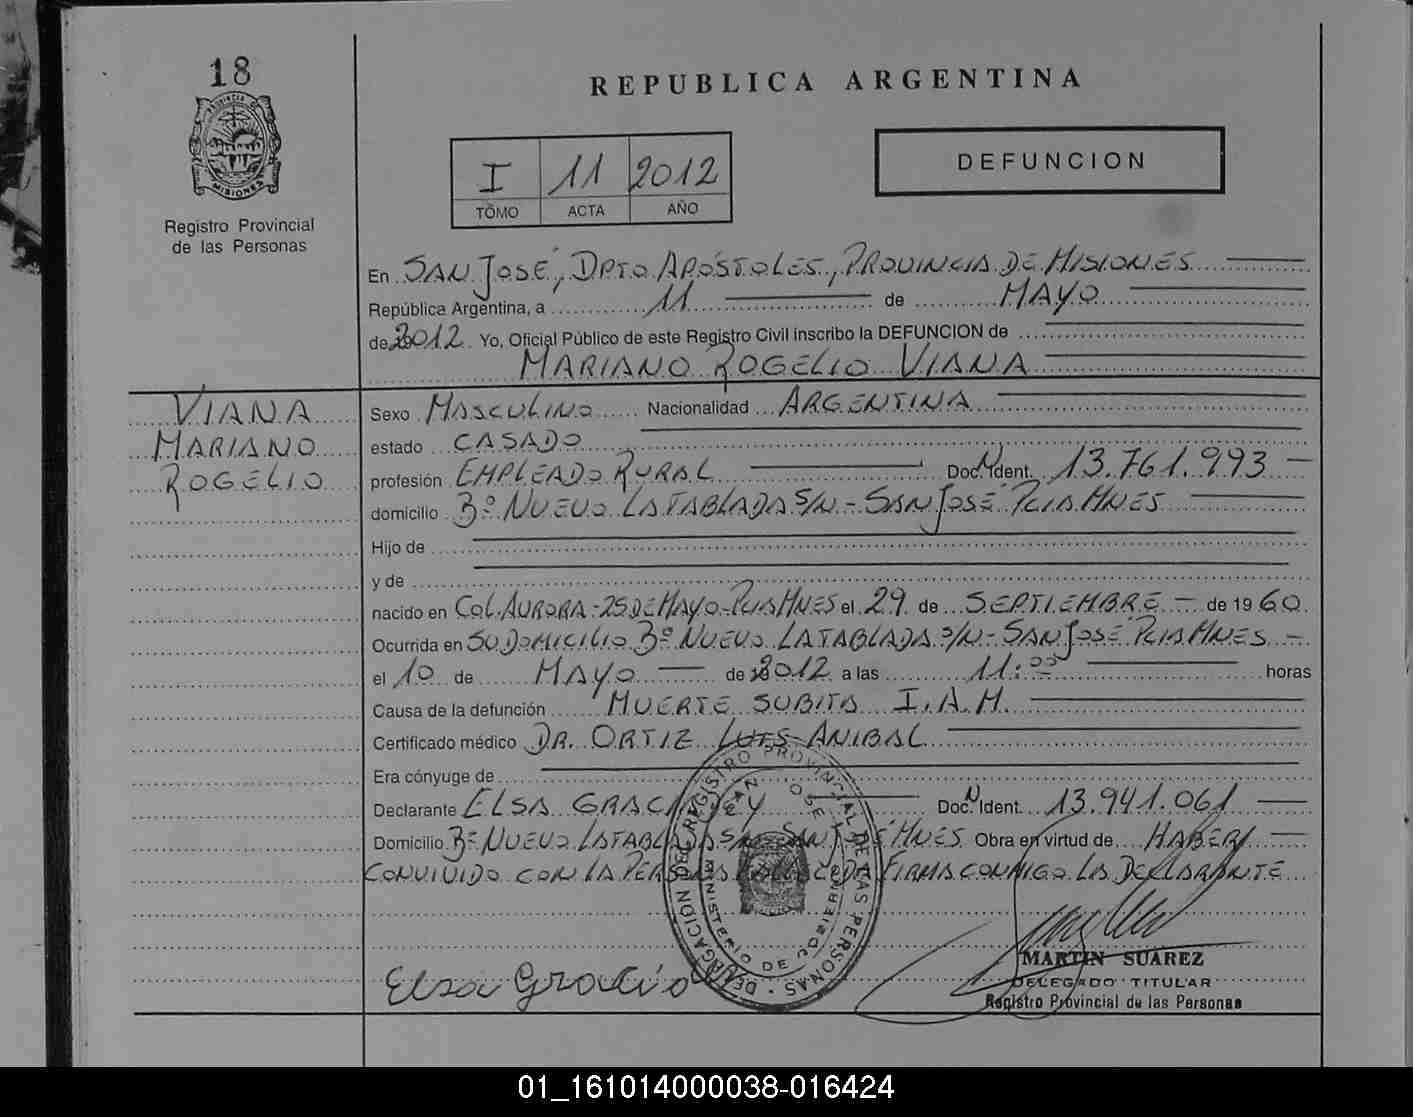 18
PROVINCIA DE
MISIONES
Registro Provincial
de las Personas
REPUBLICA ARGENTINA
I 11 2012
TOMO ACTA AÑO
DEFUNCION
En SAN JOSÉ, DPTO APÓSTOLES, PROVINCIA DE MISIONES
República Argentina, a 11 de MAYO
de 2012 Yo, Oficial Público de este Registro Civil inscribo la DEFUNCION de
MARIANO ROGELIO VIANA
VIANA
MARIANO
ROGELIO
Sexo MASCULINO Nacionalidad ARGENTINA
estado CASADO
profesión EMPLEADO RURAL Doc. N Ident. 13.761.993
domicilio Bº NUEVO LA TABLADA S/N - SAN JOSÉ PCIA MNES
Hijo de
y de
nacido en COL. AURORA - 25 DE MAYO - PCIA MNES el 29 de SEPTIEMBRE de 1960
Ocurrida en SU DOMICILIO Bº NUEVO LA TABLADA S/N - SAN JOSÉ PCIA MNES
el 10 de MAYO de 2012 a las 11:00 horas
Causa de la defunción MUERTE SUBITA I.A.M.
Certificado médico DR. ORTIZ LUIS ANIBAL
Era cónyuge de
Declarante ELSA GRAC Doc. N Ident. 13.941.061
Domicilio Bº NUEVO LA TABLADA S/N SAN JOSÉ MNES Obra en virtud de HABER
CONVIVIDO CON LA PERSONA FALLECIDA FIRMA CONMIGO LA DECLARANTE
DELEGACION DEL REGISTRO PROVINCIAL DE LAS PERSONAS
SAN JOSE
MINISTERIO DE GOBIERNO
Elsa Graci
MARTIN SUAREZ
DELEGADO TITULAR
Registro Provincial de las Personas
01_161014000038-016424